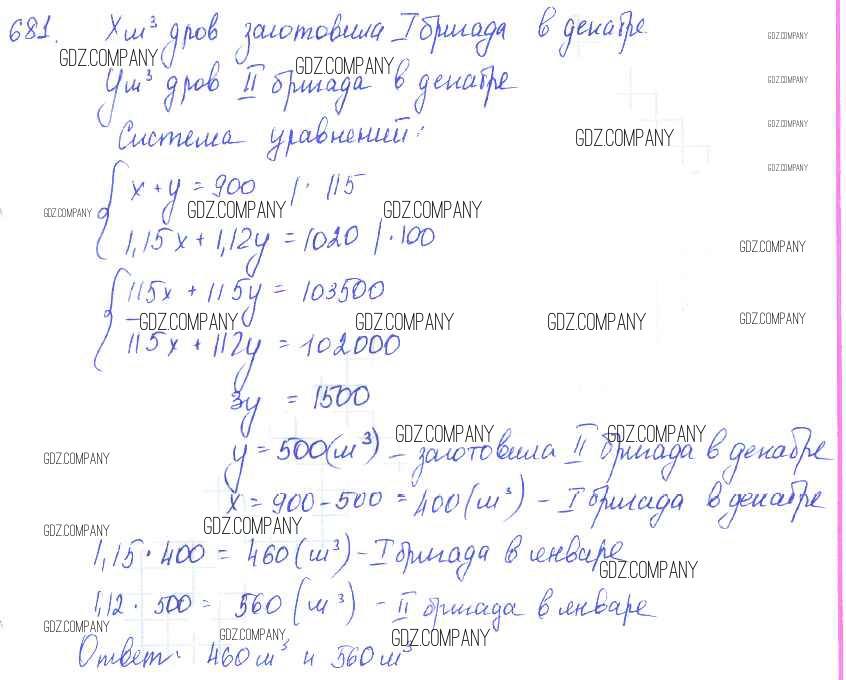 681. Xм³ дров заготовила I бригада в декабре
GDZ.COMPANY GDZ.COMPANY GDZ.COMPANY
Yм³ дров II бригада в декабре
GDZ.COMPANY
Система уравнений:
GDZ.COMPANY GDZ.COMPANY
GDZ.COMPANY
x + y = 900 | · 115
GDZ.COMPANY GDZ.COMPANY GDZ.COMPANY
1,15x + 1,12y = 1020 | · 100
GDZ.COMPANY
115x + 115y = 103500
– GDZ.COMPANY GDZ.COMPANY GDZ.COMPANY GDZ.COMPANY
115x + 112y = 102000
3y = 1500
GDZ.COMPANY GDZ.COMPANY
y = 500(м³) – заготовила II бригада в декабре
GDZ.COMPANY
x = 900 – 500 = 400(м³) – I бригада в декабре
GDZ.COMPANY GDZ.COMPANY
1,15 · 400 = 460(м³) – I бригада в январе
GDZ.COMPANY
1,12 · 500 = 560(м³) – II бригада в январе
GDZ.COMPANY GDZ.COMPANY GDZ.COMPANY
Ответ: 460м³ и 560м³